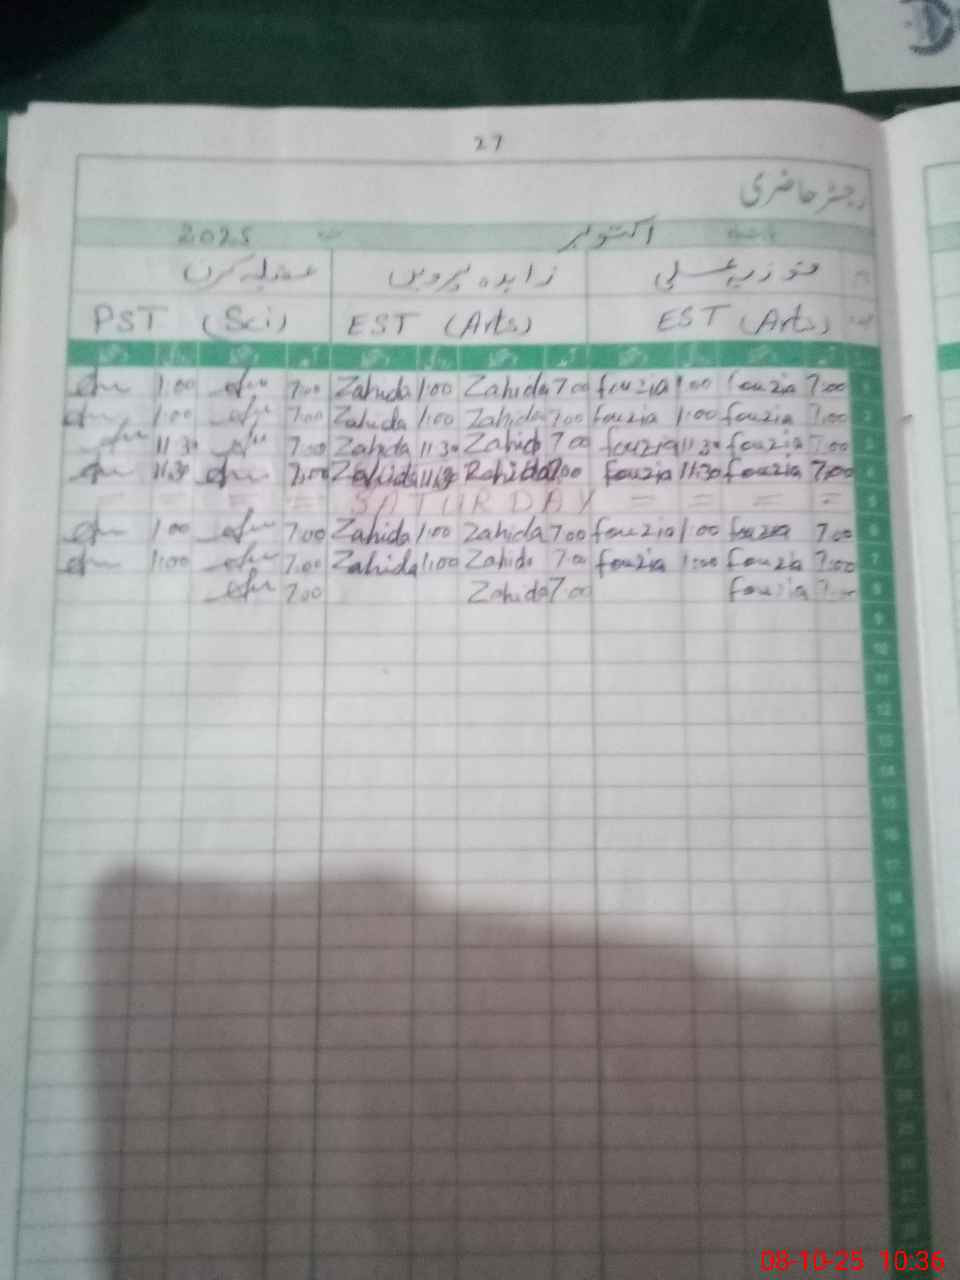 27
رجسٹر حاضری
اکتوبر 2025
فوزیہ علی زاہدہ پروین
EST (Arts) EST (Arts) PST (Sci)
1:00 7:00 Zahida 1:00 Zahida 7:00 fouzia 1:00 fouzia 7:00 1
1:00 7:00 Zahida 1:00 Zahida 7:00 fouzia 1:00 fouzia 7:00 2
11:30 7:00 Zahida 11:30 Zahida 7:00 fouzia 11:30 fouzia 7:00 3
11:30 7:00 Zahida 11:30 Zahida 7:00 fouzia 11:30 fouzia 7:00 4
= = = = SATURDAY = = = = 5
1:00 7:00 Zahida 1:00 Zahida 7:00 fouzia 1:00 fouzia 7:00 6
1:00 7:00 Zahida 1:00 Zahida 7:00 fouzia 1:00 fouzia 7:00 7
7:00 Zahida 7:00 fouzia 7:00 8
9
10
11
12
13
14
15
16
17
18
19
20
21
22
23
24
25
26
27
28
08-10-25 10:36